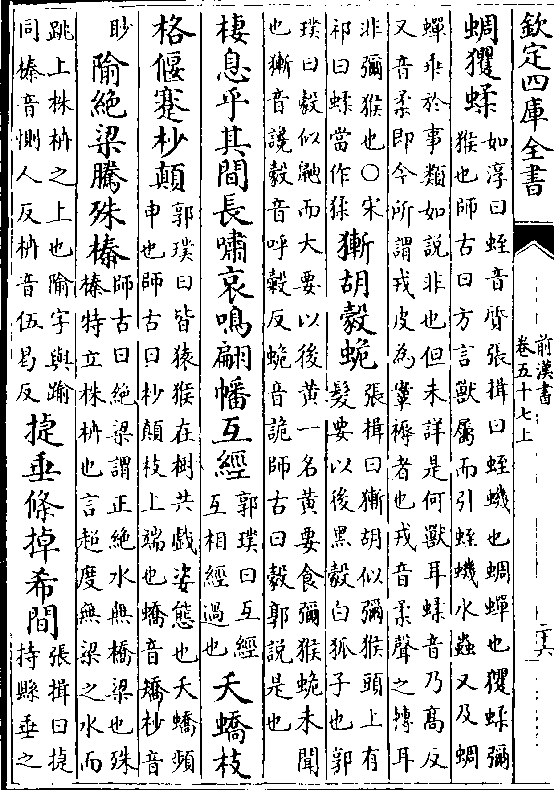 欽定四庫全書
前漢書
卷五十七上
二十六
蜩玃蝚如淳曰蛭音質張揖曰蛭蟣也蜩蟬也玃蝚彌猴也師古曰方言獸屬而引蛭蟣水蟲又及蜩
蟬乖於事類如說非也但未詳是何獸耳蝚音乃高反又音柔即今所謂戎皮為鞌褥者也戎音柔聲之轉耳
非彌猴也○宋祁曰蝚當作猱獑胡豰蛫張揖曰獑胡似彌猴頭上有髮要以後黑豰白狐子也郭
璞曰豰似鼬而大要以後黃一名黃要食彌猴蛫未聞也獑音讒豰音呼穀反蛫音詭師古曰豰郭説是也
棲息乎其間長嘯哀鳴翩幡互經郭璞曰互經互相經過也夭蟜枝
格偃蹇杪顛郭璞曰皆猿猴在樹共戲姿態也夭蟜頻申也師古曰杪顛枝上端也蟜音矯杪音
眇隃絶梁騰殊榛師古曰絶梁謂正絶水無橋梁也殊榛特立株枿也言超度無梁之水而
跳上株枿之上也隃字與踰同榛音惻人反枿音伍曷反捷垂條掉希間張揖曰捷持縣垂之